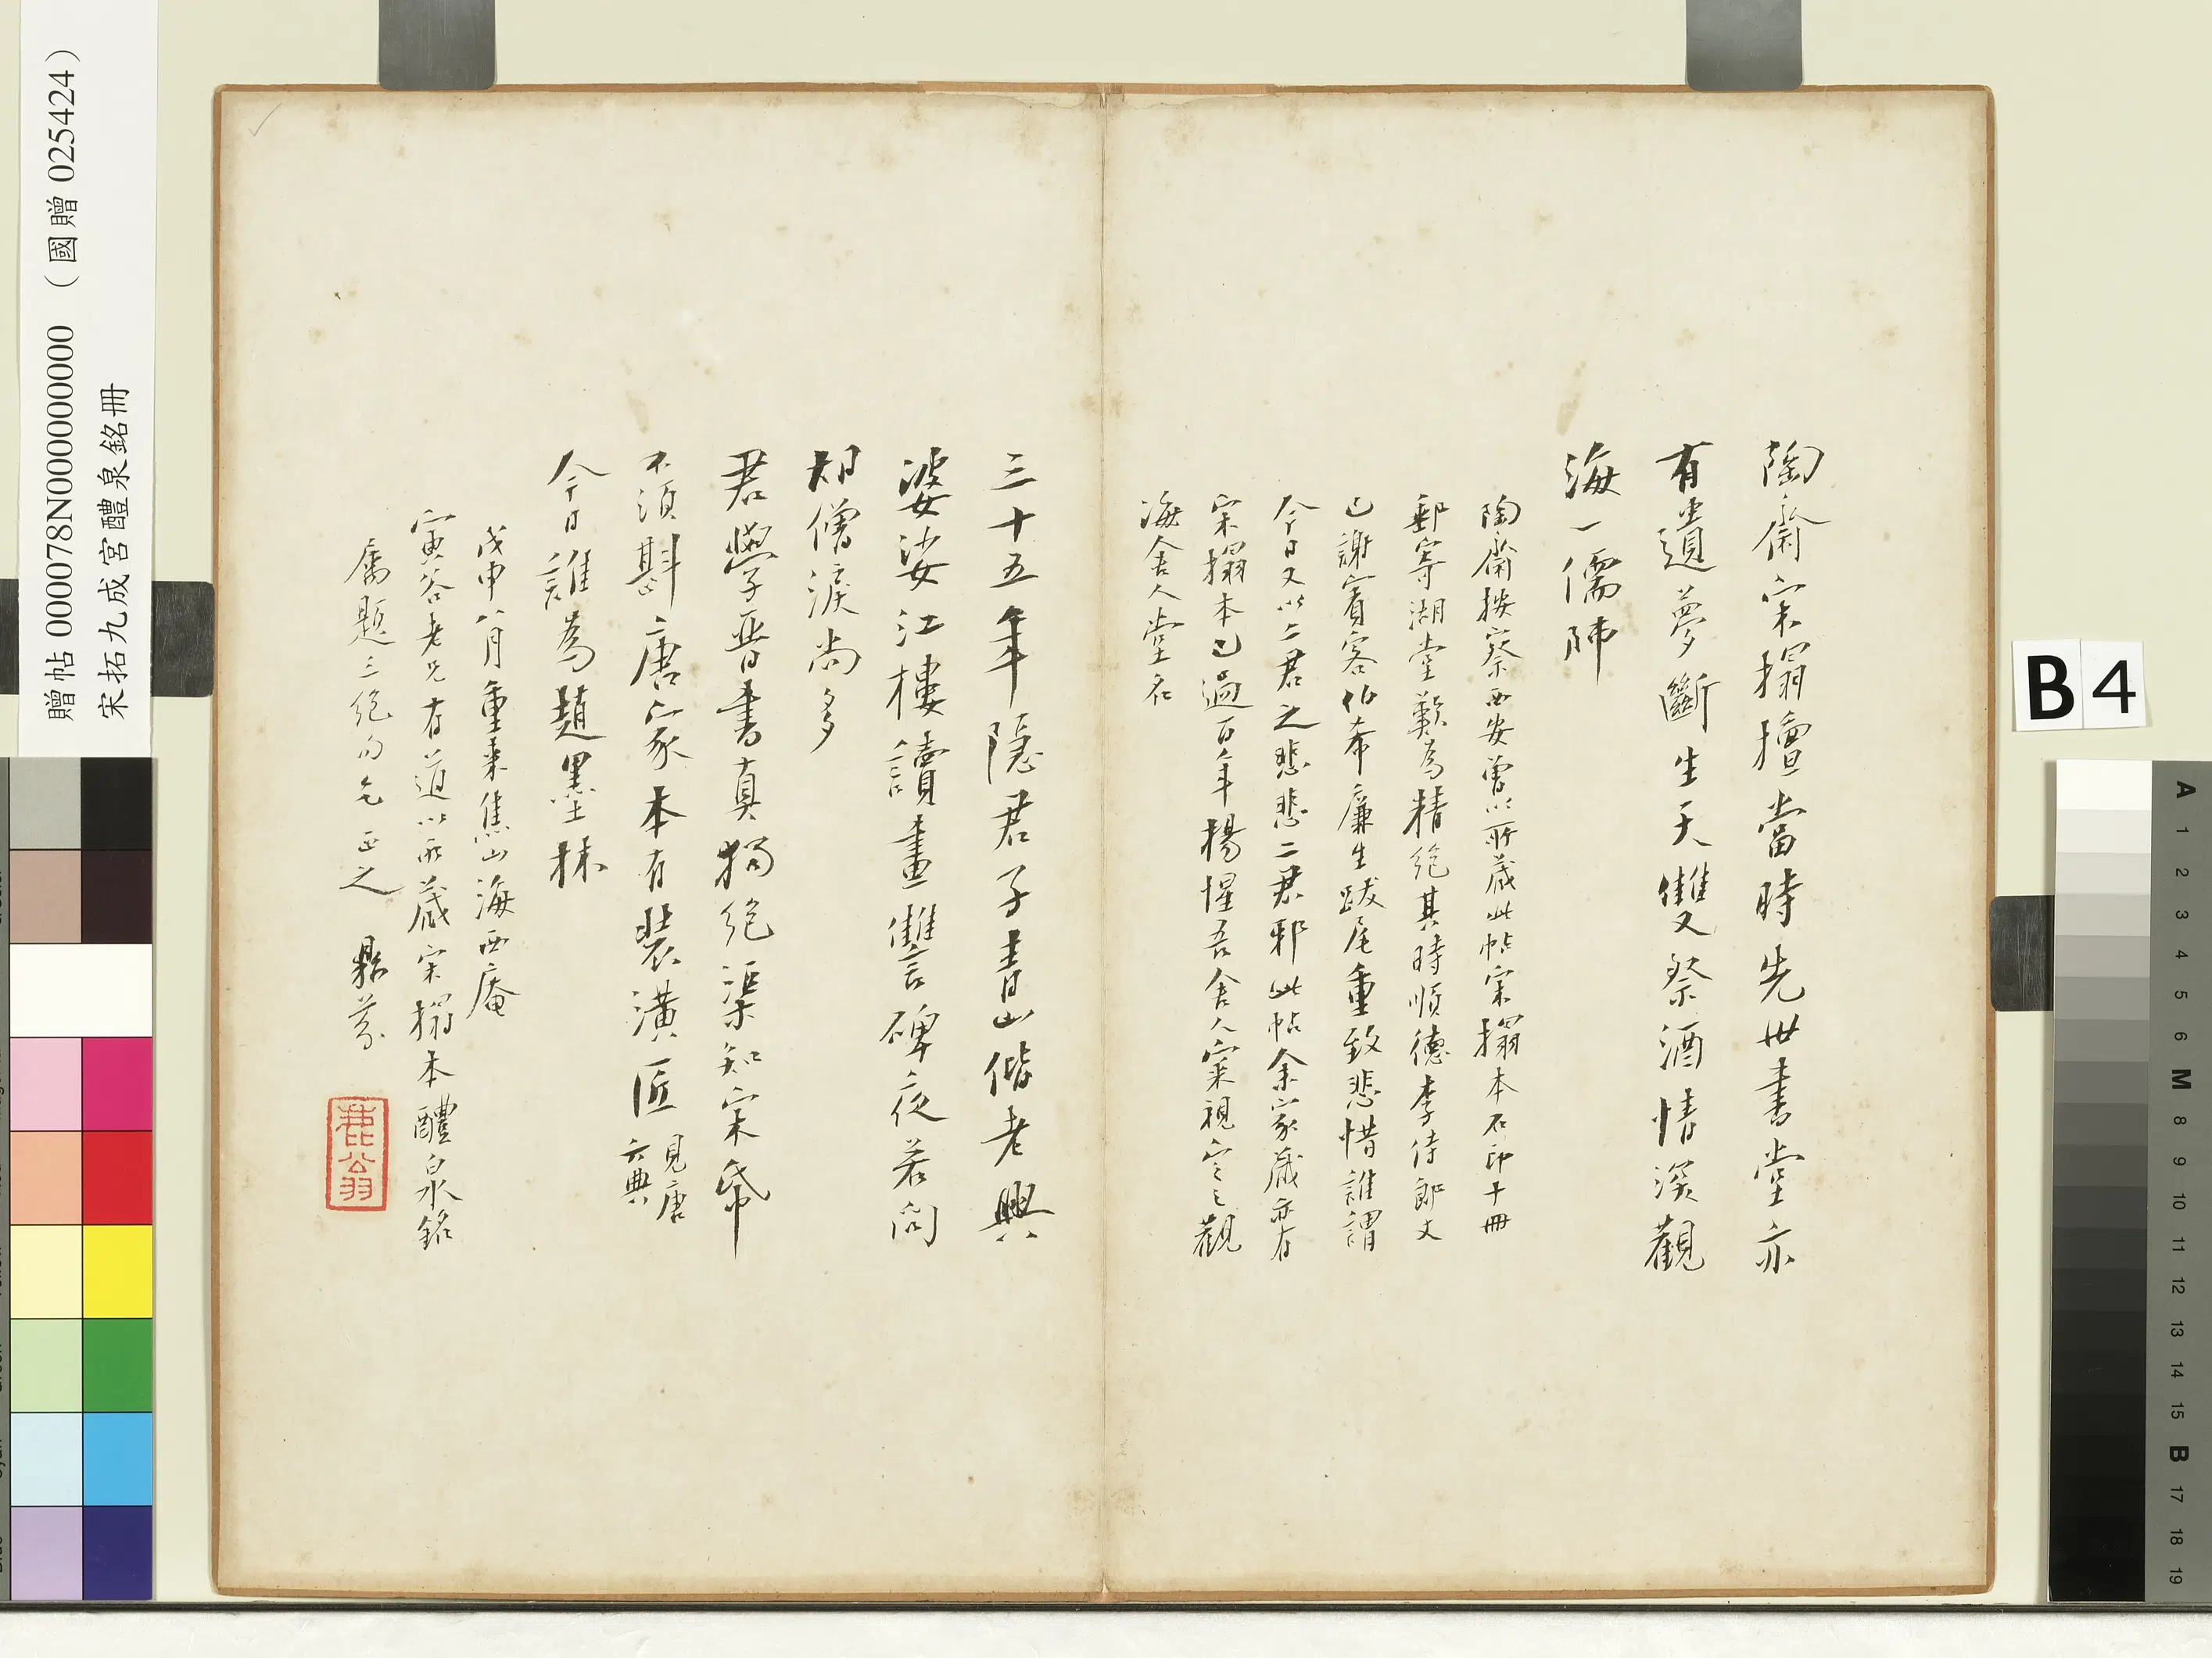 陶齋宋搨擅當時先世書堂亦
有遺夢斷生天雙祭酒情深觀
海一儒師
陶齋按察西安曾以所藏此帖宋搨本石印十冊
郵寄湖堂歎為精絕其時順德李侍郎文
已謝賓客伯希廉生跋尾重致悲惜誰謂
今日又以二君之悲悲二君邪此帖余家藏亦有
宋搨本已過百年楊惺吾舍人審視定之觀
海舍人堂名
三十五年隱君子青山偕老興
婆娑江樓讀畫讎碑夜若問
胡僧淚尚多
君學晉書真獨絕渠知宋帋
不須斟唐家本有裝潢匠見唐六典
今日誰為趙墨林
戊申八月重來焦山海西庵
寅谷老兄有道以所藏宋搨本醴泉銘
屬題三絕句乞正之 鼎芬
鹿翁
贈帖000078N000000000 (國贈025424)
宋拓九成宮醴泉銘冊
B 4
A 1 2 3 4 5 6 M 8 9 10 11 12 13 14 15 B 17 18 19